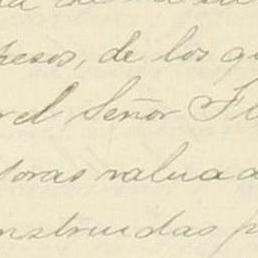 pesos, de los qu
el Señor F
toras valuad
nstruidas p